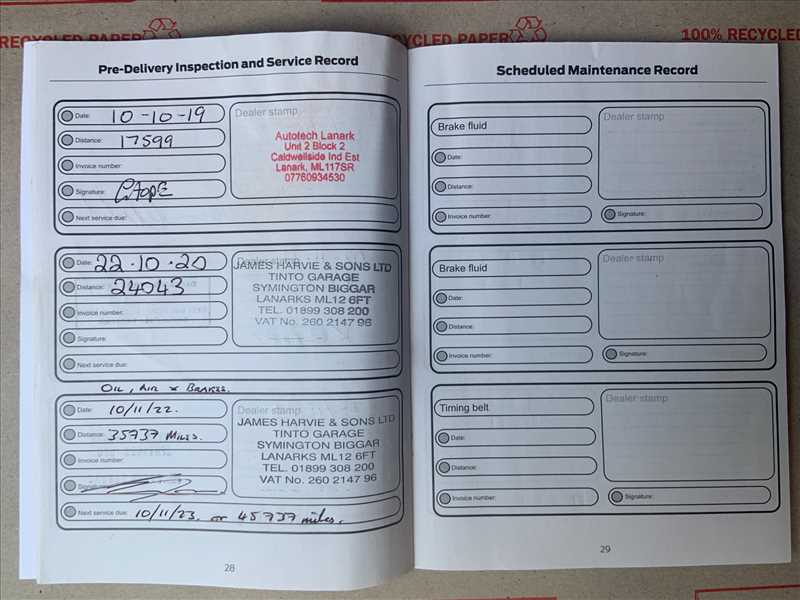 100% RECYCLED PAPER
RECYCLED PAPER
100% RECYCLED
Pre-Delivery Inspection and Service Record
Date: 10-10-19
Distance: 17599
Invoice number:
Signature:
Next service due:
Dealer stamp
Autotech Lanark
Unit 2 Block 2
Caldwellside Ind Est
Lanark, ML117SR
07760934530
Date: 22.10.20
Distance: 24043
Invoice number:
Signature:
Next service due:
Dealer stamp
JAMES HARVIE & SONS LTD
TINTO GARAGE
SYMINGTON BIGGAR
LANARKS ML12 6FT
TEL. 01899 308 200
VAT No. 260 2147 96
OIL, AIR & BRAKES.
Date: 10/11/22.
Distance: 35737 MILES.
Invoice number:
Signature:
Next service due: 10/11/23. or 45737 miles.
Dealer stamp
JAMES HARVIE & SONS LTD
TINTO GARAGE
SYMINGTON BIGGAR
LANARKS ML12 6FT
TEL. 01899 308 200
VAT No. 260 2147 96
28
Scheduled Maintenance Record
Brake fluid
Date:
Distance:
Invoice number:
Dealer stamp
Signature:
Brake fluid
Date:
Distance:
Invoice number:
Dealer stamp
Signature:
Timing belt
Date:
Distance:
Invoice number:
Dealer stamp
Signature:
29